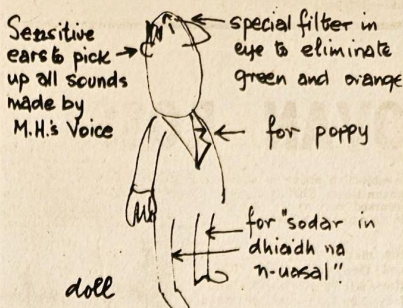 Sensitive
ears to pick
up all sounds
made by
M.H.'s Voice
special filter in
eye to eliminate
green and orange
for poppy
for "sodar in
dhiaidh na
n-uasal"
doll